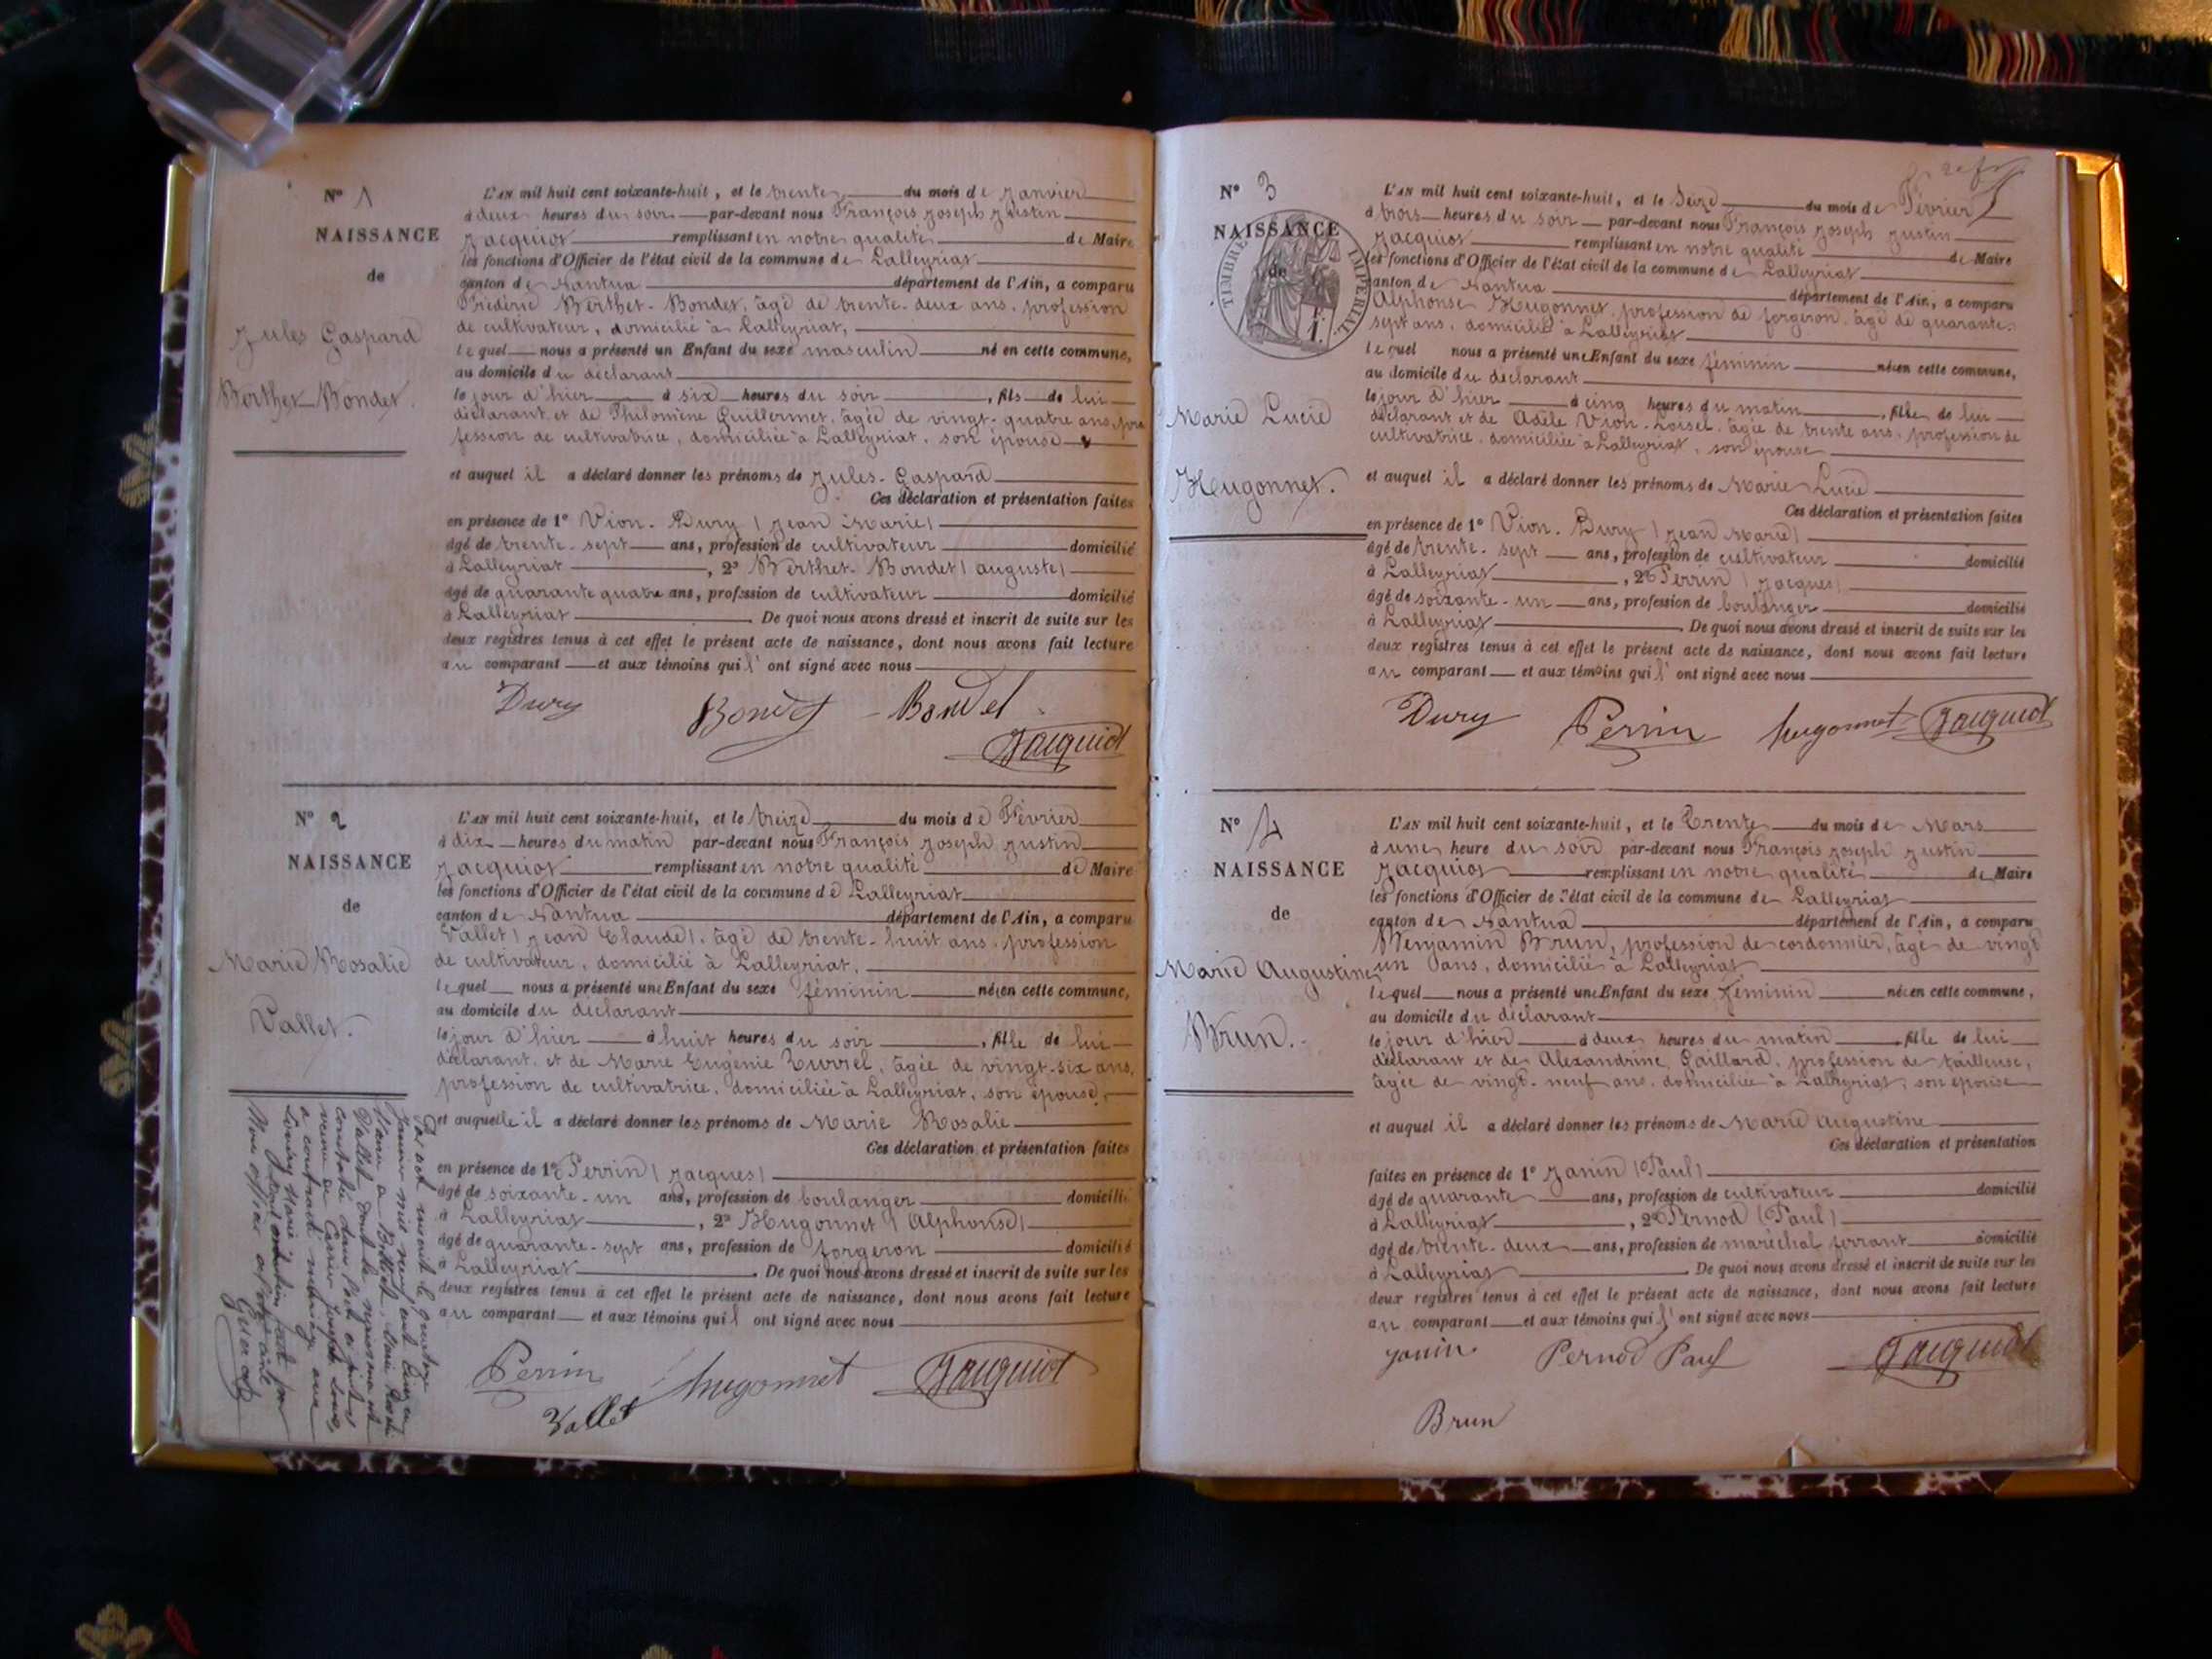 N° 1
NAISSANCE
de
Jules Gaspard
Berthet-Bondet.
L'AN mil huit cent soixante-huit, et le trente du mois de Janvier
à deux heures du soir par-devant nous François Joseph Justin
Jacquiot remplissant en notre qualité de Maire
les fonctions d'Officier de l'état civil de la commune de Lalleyriat
canton de Nantua département de l'Ain, a comparu
Frédéric Berthet-Bondet, âgé de trente-deux ans, profession
de cultivateur, domicilié à Lalleyriat,
lequel nous a présenté un Enfant du sexe masculin né en cette commune,
au domicile du déclarant
le jour d'hier à six heures du soir, fils de lui
déclarant et de Philomène Guillermet, âgée de vingt-quatre ans, pro
fession de cultivatrice, domiciliée à Lalleyriat, son épouse
et auquel il a déclaré donner les prénoms de Jules-Gaspard
Ces déclaration et présentation faites
en présence de 1° Vion-Dury (Jean Marie)
âgé de trente-sept ans, profession de cultivateur domicilié
à Lalleyriat, 2° Berthet-Bondet (auguste)
âgé de quarante quatre ans, profession de cultivateur domicilié
à Lalleyriat. De quoi nous avons dressé et inscrit de suite sur les
deux registres tenus à cet effet le présent acte de naissance, dont nous avons fait lecture
au comparant et aux témoins qui l'ont signé avec nous
Dury Bondet Bondet
Jacquiot
N° 2
NAISSANCE
de
Marie Rosalie
Vallet.
L'AN mil huit cent soixante-huit, et le treize du mois de Février
à dix heures du matin par-devant nous François Joseph Justin
Jacquiot remplissant en notre qualité de Maire
les fonctions d'Officier de l'état civil de la commune de Lalleyriat
canton de Nantua département de l'Ain, a comparu
Vallet (Jean Claude), âgé de trente-huit ans, profession
de cultivateur, domicilié à Lalleyriat,
lequel nous a présenté une Enfant du sexe féminin née en cette commune,
au domicile du déclarant
le jour d'hier à huit heures du soir, fille de lui
déclarant, et de Marie Eugénie Turrel, âgée de vingt-six ans,
profession de cultivatrice, domiciliée à Lalleyriat, son épouse,
et auquelle il a déclaré donner les prénoms de Marie Rosalie
Ces déclaration et présentation faites
en présence de 1° Perrin (Jacques)
âgé de soixante-un ans, profession de boulanger domicilié
à Lalleyriat, 2° Hugonnet (Alphonse)
âgé de quarante-sept ans, profession de forgeron domicilié
à Lalleyriat. De quoi nous avons dressé et inscrit de suite sur les
deux registres tenus à cet effet le présent acte de naissance, dont nous avons fait lecture
au comparant et aux témoins qu'il ont signé avec nous
Perrin hugonnet Jacquiot
Vallet
N° 3
NAISSANCE
de
TIMBRE IMPÉRIAL
Marie Lucie
Hugonnet.
L'AN mil huit cent soixante-huit, et le Seize du mois de Février
à trois heures du soir par-devant nous François Joseph Justin
Jacquiot remplissant en notre qualité de Maire
les fonctions d'Officier de l'état civil de la commune de Lalleyriat
canton de Nantua département de l'Ain, a comparu
Alphonse Hugonnet, profession de forgeron, âgé de quarante-
sept ans, domicilié à Lalleyriat
lequel nous a présenté une Enfant du sexe féminin née en cette commune,
au domicile du déclarant
le jour d'hier à cinq heures du matin, fille de lui
déclarant et de Adèle Vion-Loisel, âgée de trente ans, profession de
cultivatrice, domiciliée à Lalleyriat, son épouse
et auquel il a déclaré donner les prénoms de Marie Lucie
Ces déclaration et présentation faites
en présence de 1° Vion-Dury (Jean Marie)
âgé de trente-sept ans, profession de cultivateur domicilié
à Lalleyriat, 2° Perrin (Jacques)
âgé de soixante-un ans, profession de boulanger domicilié
à Lalleyriat. De quoi nous avons dressé et inscrit de suite sur les
deux registres tenus à cet effet le présent acte de naissance, dont nous avons fait lecture
au comparant et aux témoins qui l'ont signé avec nous
Dury Perrin hugonnet Jacquiot
N° 4
NAISSANCE
de
Marie Augustine
Brun.
L'AN mil huit cent soixante-huit, et le Trente du mois de Mars
à une heure du soir par-devant nous François Joseph Justin
Jacquiot remplissant en notre qualité de Maire
les fonctions d'Officier de l'état civil de la commune de Lalleyriat
canton de Nantua département de l'Ain, a comparu
Benjamin Brun, profession de cordonnier, âgé de vingt
un ans, domicilié à Lalleyriat
lequel nous a présenté une Enfant du sexe féminin née en cette commune,
au domicile du déclarant
le jour d'hier à deux heures du matin, fille de lui
déclarant et de Alexandrine Gaillard, profession de tailleuse,
âgée de vingt-neuf ans, domiciliée à Lalleyriat, son épouse
et auquel il a déclaré donner les prénoms de Marie Augustine
Ces déclaration et présentation
faites en présence de 1° Janin (Paul)
âgé de quarante ans, profession de cultivateur domicilié
à Lalleyriat, 2° Pernod (Paul)
âgé de trente-deux ans, profession de maréchal ferrant domicilié
à Lalleyriat. De quoi nous avons dressé et inscrit de suite sur les
deux registres tenus à cet effet le présent acte de naissance, dont nous avons fait lecture
au comparant et aux témoins qui l'ont signé avec nous
Janin Pernod Paul Jacquiot
Brun